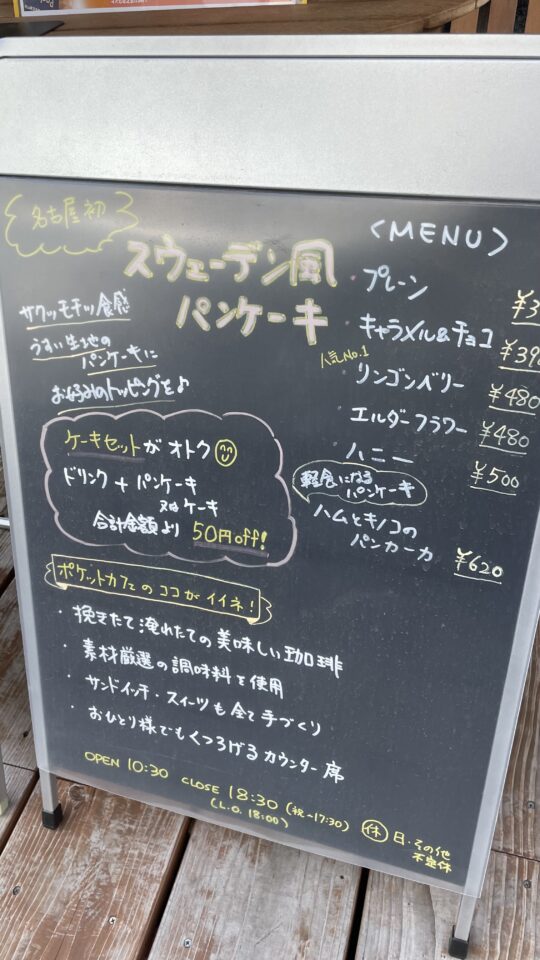 名古屋初
スウェーデン風
パンケーキ
サクッモチッ食感
うすい生地の
パンケーキに
お好みのトッピングを♪
ケーキセットがオトク
ドリンク + パンケーキ
又はケーキ
合計金額より 50円off!
ポケットカフェのココがイイネ!
・挽きたて淹れたての美味しい珈琲
・素材厳選の調味料を使用
・サンドイッチ・スイーツも全て手づくり
・おひとり様でもくつろげるカウンター席
<MENU>
・プレーン ¥3
・キャラメル&チョコ ¥390
人気No.1
・リンゴンベリー ¥480
・エルダーフラワー ¥480
・ハニー ¥500
軽食になる
パンケーキ
ハムとキノコの
パンカーカ ¥620
OPEN 10:30 CLOSE 18:30 (祝~17:30)
(L.O. 18:00)
休 日・その他
不定休